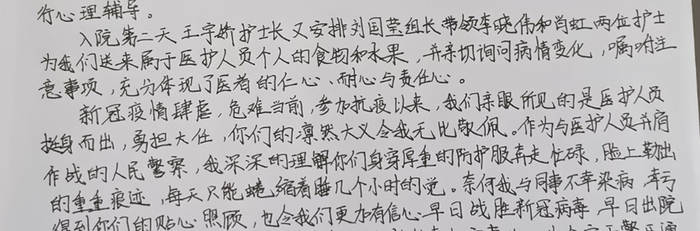 行心理辅导。
入院第二天王宇娇护士长又安排刘国莹组长带领李晓伟和肖虹两位护士
为我们送来属于医护人员个人的食物和水果，并亲切询问病情变化，嘱咐注
意事项，充分体现了医者的仁心、耐心与责任心。
新冠疫情肆虐，危难当前，参加抗疫以来，我们亲眼所见的是医护人员
挺身而出，勇担大任，你们的凛然大义令我无比敬佩。作为与医护人员并肩
作战的人民警察，我深深的理解你们身穿厚重的防护服奔走忙碌，脸上勒出
的重重痕迹，每天只能蜷缩着睡几个小时的觉。奈何我与同事不幸染病，幸亏
得到你们的贴心照顾，也令我们更加有信心早日战胜新冠病毒，早日出院